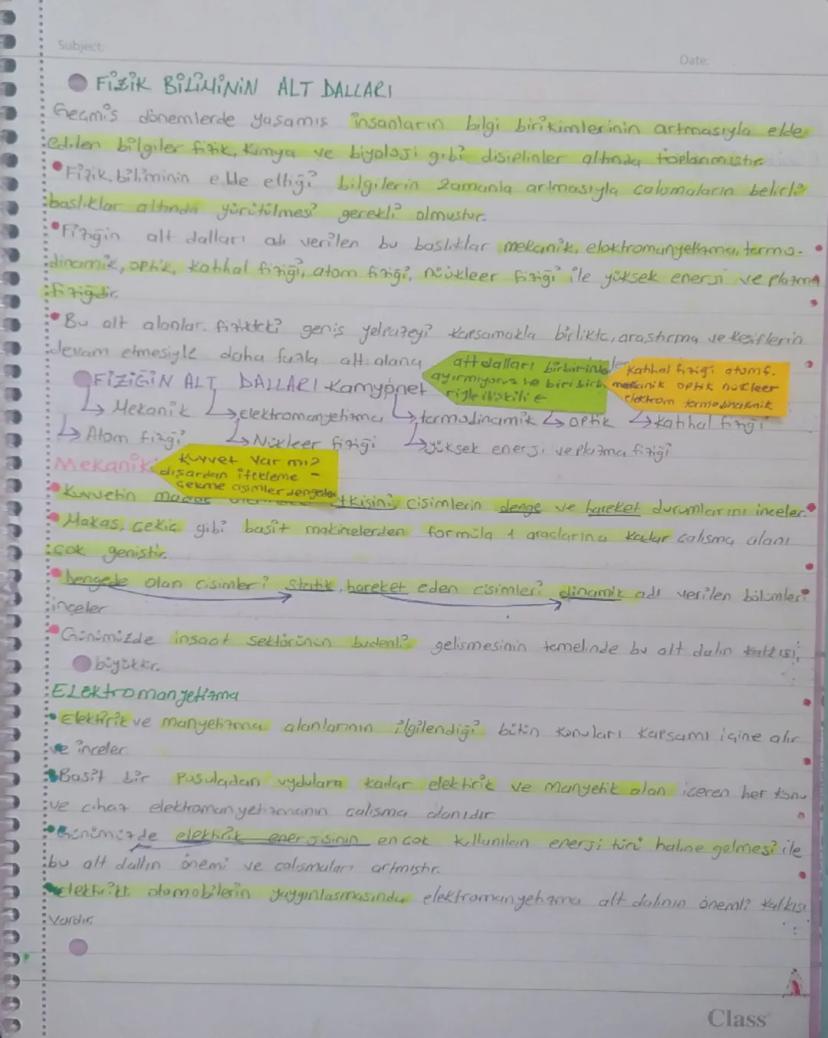 Subject:
Date:
FİZİK BİLİMİNİN ALT DALLARI
Geçmiş dönemlerde yaşamış insanların bilgi birikimlerinin artmasıyla elde
edilen bilgiler fizik, kimya ve biyoloji gibi disiplinler altında toplanmıştır.
Fizik biliminin elde ettiği bilgilerin zamanla artmasıyla çalışmaların belirli
başlıklar altında yürütülmesi gerekli olmuştur.
Fiziğin alt dalları adı verilen bu başlıklar mekanik, elektromanyetizma, termo-
dinamik, optik, katıhal fiziği, atom fiziği, nükleer fiziği ile yüksek enerji ve plazma
fiziğidir.
Bu alt alanlar fizikteki geniş yelpazeyi kapsamakla birlikte, araştırma ve keşiflerin
devam etmesiyle daha fazla alt alana
alt dalları birbirinden
ayırmıyoruz ve
katıhal fiziği atom f.
mekanik optik nükleer
elektrom termodinamik
FİZİĞİN ALT DALLARI Kamyonet
Mekanik elektromanyetizma termodinamik optik katıhal fiziği
Atom fiziği Nükleer fiziği yüksek enerji ve plazma fiziği
Mekanik
Kuvvet var mı?
dışardan itekleme -
çekme cisimler dengede
Kuvvetin etkisini, cisimlerin denge ve hareket durumlarını inceler.
Makas, çekiç gibi basit makinelerden formüla 1 araçlarına kadar çalışma alanı
çok geniştir.
Dengede olan cisimleri statik, hareket eden cisimleri dinamik adı verilen bölümleri
inceler
Günümüzde inşaat sektörünün budenli gelişmesinin temelinde bu alt dalın katkısı
büyüktür.
Elektromanyetizma
Elektirik ve manyetizma alanlarının ilgilendiği bütün konuları kapsamı içine alır
ve inceler
Basit bir pusuladan uydulara kadar elektirik ve manyetik alan içeren her konu
ve cihaz elektromanyetizmanın çalışma alanıdır
Günümüzde elektirik enerjisinin en çok kullanılan enerji türü haline gelmesi ile
bu alt dallın önemi ve çalışmaları artmıştır.
elektrikli otomobillerin yaygınlaşmasında elektromanyetizma alt dalının önemli katkısı
vardır.
Class